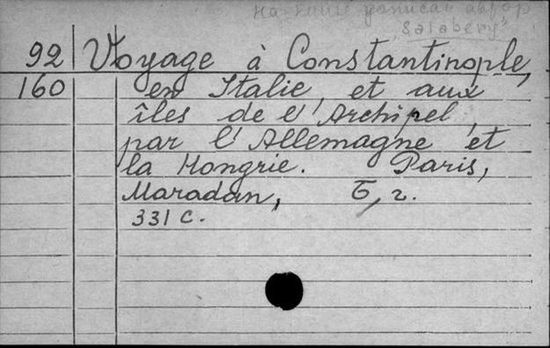 на книге написан автор
Salabery
92 Voyage à Constantinople,
160 en Italie, et aux
îles de l'Archipel
par l'Allemagne et
la Hongrie. Paris,
Maradan, Б, г.
331 c.